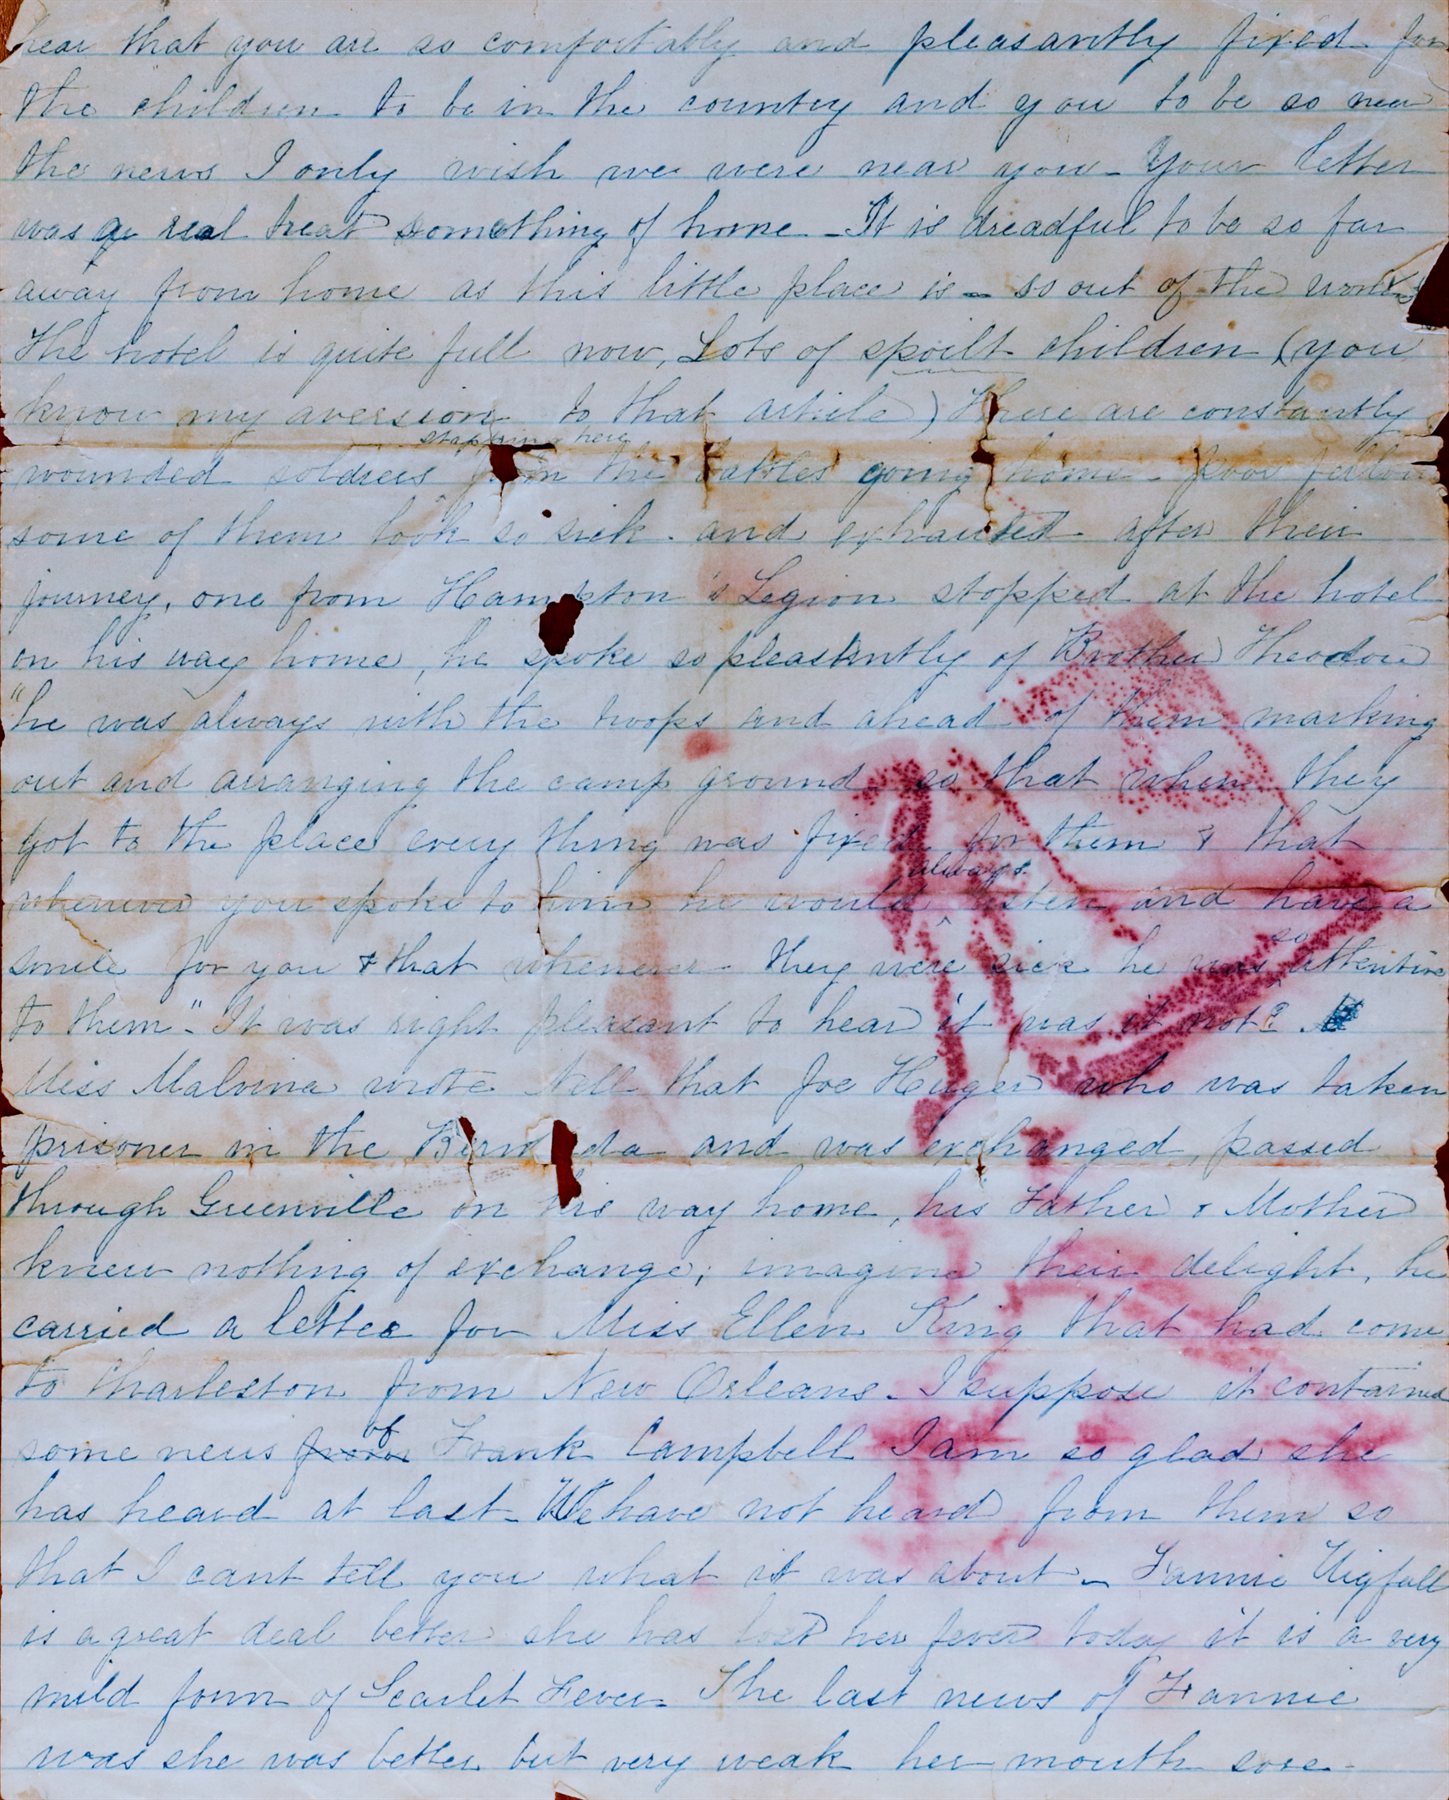 hear that you are so comfortably and pleasantly fixed for
the children to be in the country and you to be so near
the news I only wish we were near you - Your letter
was a real treat something of home - It is dreadful to be so far
away from home as this little place is - so out of the world
The hotel is quite full now, Lots of spoilt children (you
know my aversion to that article) There are constantly
stopping here
wounded soldiers from the battles going home - poor fellows
some of them look so sick and exhausted after their
journey, one from Hampton's Legion stopped at the hotel
on his way home, he spoke so pleasantly of Brother Theodore
"he was always with the troops and ahead of them marking
out and arranging the camp ground so that when they
got to the place every thing was fixed for them & that
always
whenever you spoke to him he would ^ listen and have a
smile for you & that whenever they were sick he was so ^ attentive
to them". It was right pleasant to hear it was it not?
Miss Malvina wrote Nell that Joe Huger who was taken
prisoner in the Bermuda and was exchanged, passed
through Greenville on his way home, his Father & Mother
knew nothing of exchange; imagine their delight, he
carried a letter for Miss Ellen King that had come
to Charleston from New Orleans - I suppose it contained
some news from of Frank Campbell I am so glad she
has heard at last - We have not heard from them so
that I cant tell you what it was about - Fannie Wigfall
is a great deal better she has lost her fever today it is a very
mild form of Scarlet Fever - The last news of Fannie
was she was better but very weak her mouth sore -